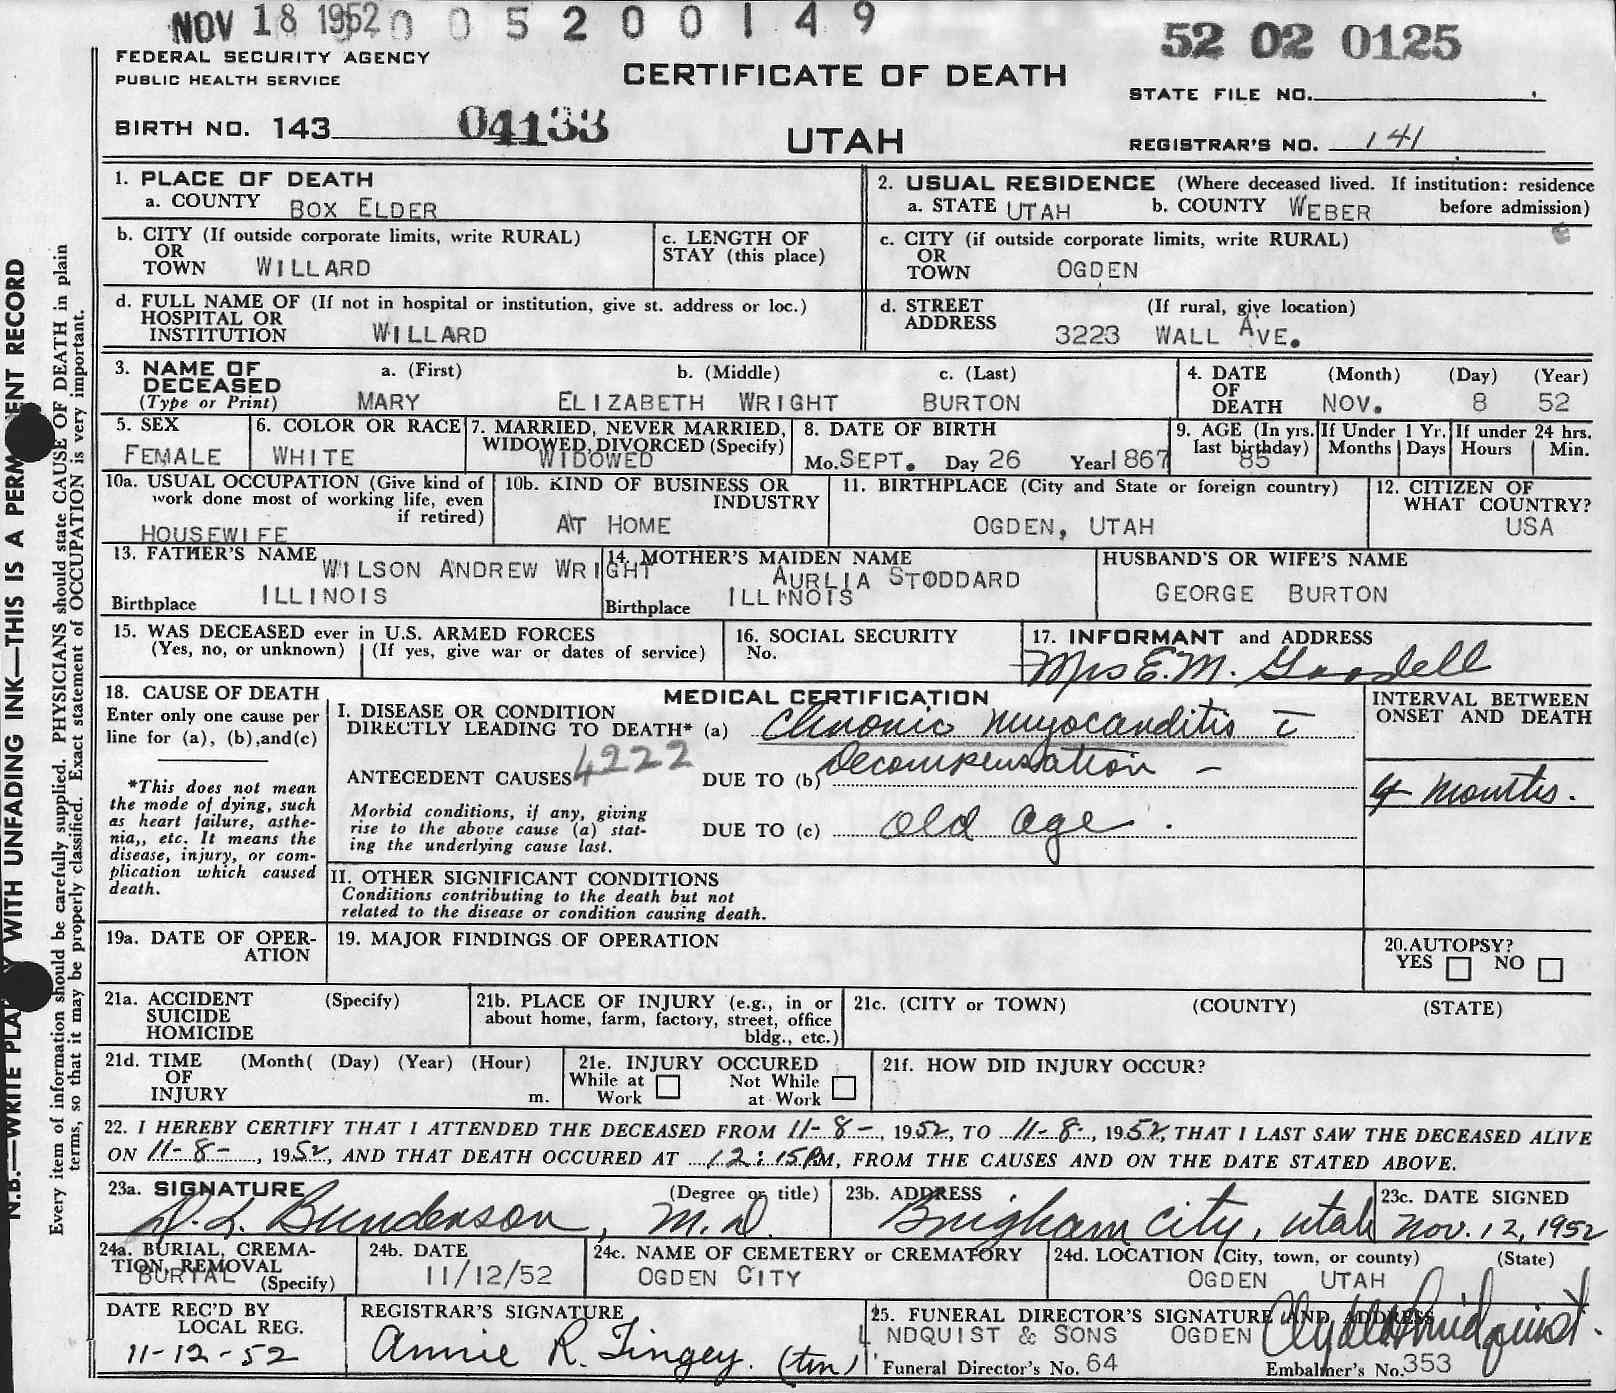 NOV 18 1952 0 0 5 2 0 0 1 4 9
52 02 0125
FEDERAL SECURITY AGENCY
PUBLIC HEALTH SERVICE
CERTIFICATE OF DEATH
STATE FILE NO.
BIRTH NO. 143 04133
UTAH
REGISTRAR'S NO. 141
1. PLACE OF DEATH
a. COUNTY BOX ELDER
2. USUAL RESIDENCE (Where deceased lived. If institution: residence
a. STATE UTAH b. COUNTY WEBER before admission)
b. CITY (If outside corporate limits, write RURAL)
OR
TOWN WILLARD
c. LENGTH OF
STAY (this place)
c. CITY (if outside corporate limits, write RURAL)
OR
TOWN OGDEN
d. FULL NAME OF (If not in hospital or institution, give st. address or loc.)
HOSPITAL OR
INSTITUTION WILLARD
d. STREET (If rural, give location)
ADDRESS 3223 WALL AVE.
3. NAME OF a. (First) b. (Middle) c. (Last)
DECEASED
(Type or Print) MARY ELIZABETH WRIGHT BURTON
4. DATE (Month) (Day) (Year)
OF
DEATH NOV. 8 52
5. SEX
FEMALE
6. COLOR OR RACE
WHITE
7. MARRIED, NEVER MARRIED,
WIDOWED, DIVORCED (Specify)
WIDOWED
8. DATE OF BIRTH
Mo. SEPT. Day 26 Year 1867
9. AGE (In yrs.
last birthday)
85
If Under 1 Yr.
Months Days
If under 24 hrs.
Hours Min.
10a. USUAL OCCUPATION (Give kind of
work done most of working life, even
if retired)
HOUSEWIFE
10b. KIND OF BUSINESS OR
INDUSTRY
AT HOME
11. BIRTHPLACE (City and State or foreign country)
OGDEN, UTAH
12. CITIZEN OF
WHAT COUNTRY?
USA
13. FATHER'S NAME WILSON ANDREW WRIGHT
Birthplace ILLINOIS
14. MOTHER'S MAIDEN NAME
AURLIA STODDARD
Birthplace ILLINOIS
HUSBAND'S OR WIFE'S NAME
GEORGE BURTON
15. WAS DECEASED ever in U.S. ARMED FORCES
(Yes, no, or unknown) (If yes, give war or dates of service)
16. SOCIAL SECURITY
No.
17. INFORMANT and ADDRESS
Mrs E.M. Goodell
18. CAUSE OF DEATH
Enter only one cause per
line for (a), (b),and(c)
*This does not mean
the mode of dying, such
as heart failure, asthe-
nia,, etc. It means the
disease, injury, or com-
plication which caused
death.
MEDICAL CERTIFICATION
I. DISEASE OR CONDITION
DIRECTLY LEADING TO DEATH* (a) Chronic myocarditis c̄
ANTECEDENT CAUSES 4222 DUE TO (b) Decompensation –
Morbid conditions, if any, giving
rise to the above cause (a) stat-
ing the underlying cause last.
DUE TO (c) Old age.
INTERVAL BETWEEN
ONSET AND DEATH
4 months.
II. OTHER SIGNIFICANT CONDITIONS
Conditions contributing to the death but not
related to the disease or condition causing death.
19a. DATE OF OPER-
ATION
19. MAJOR FINDINGS OF OPERATION
20. AUTOPSY?
YES NO
21a. ACCIDENT (Specify)
SUICIDE
HOMICIDE
21b. PLACE OF INJURY (e.g., in or
about home, farm, factory, street, office
bldg., etc.)
21c. (CITY or TOWN) (COUNTY) (STATE)
21d. TIME (Month( (Day) (Year) (Hour)
OF
INJURY m.
21e. INJURY OCCURED
While at Not While
Work at Work
21f. HOW DID INJURY OCCUR?
22. I HEREBY CERTIFY THAT I ATTENDED THE DECEASED FROM 11-8-, 1952, TO 11-8-, 1952, THAT I LAST SAW THE DECEASED ALIVE
ON 11-8-, 1952, AND THAT DEATH OCCURED AT 12:15 PM, FROM THE CAUSES AND ON THE DATE STATED ABOVE.
23a. SIGNATURE (Degree or title)
D. L. Bunderson, M.D.
23b. ADDRESS
Brigham City, Utah
23c. DATE SIGNED
Nov. 12, 1952
24a. BURIAL, CREMA-
TION, REMOVAL
BURIAL (Specify)
24b. DATE
11/12/52
24c. NAME OF CEMETERY or CREMATORY
OGDEN CITY
24d. LOCATION (City, town, or county) (State)
OGDEN UTAH
DATE REC'D BY
LOCAL REG.
11-12-52
REGISTRAR'S SIGNATURE
Annie R. Tingey.
25. FUNERAL DIRECTOR'S SIGNATURE AND ADDRESS
L NDQUIST & SONS OGDEN Clyde Lindquist.
Funeral Director's No. 64 Embalmer's No. 353
N.B.—WRITE PLAINLY WITH UNFADING INK—THIS IS A PERMANENT RECORD
Every item of information should be carefully supplied. PHYSICIANS should state CAUSE OF DEATH in plain
terms, so that it may be properly classified. Exact statement of OCCUPATION is very important.